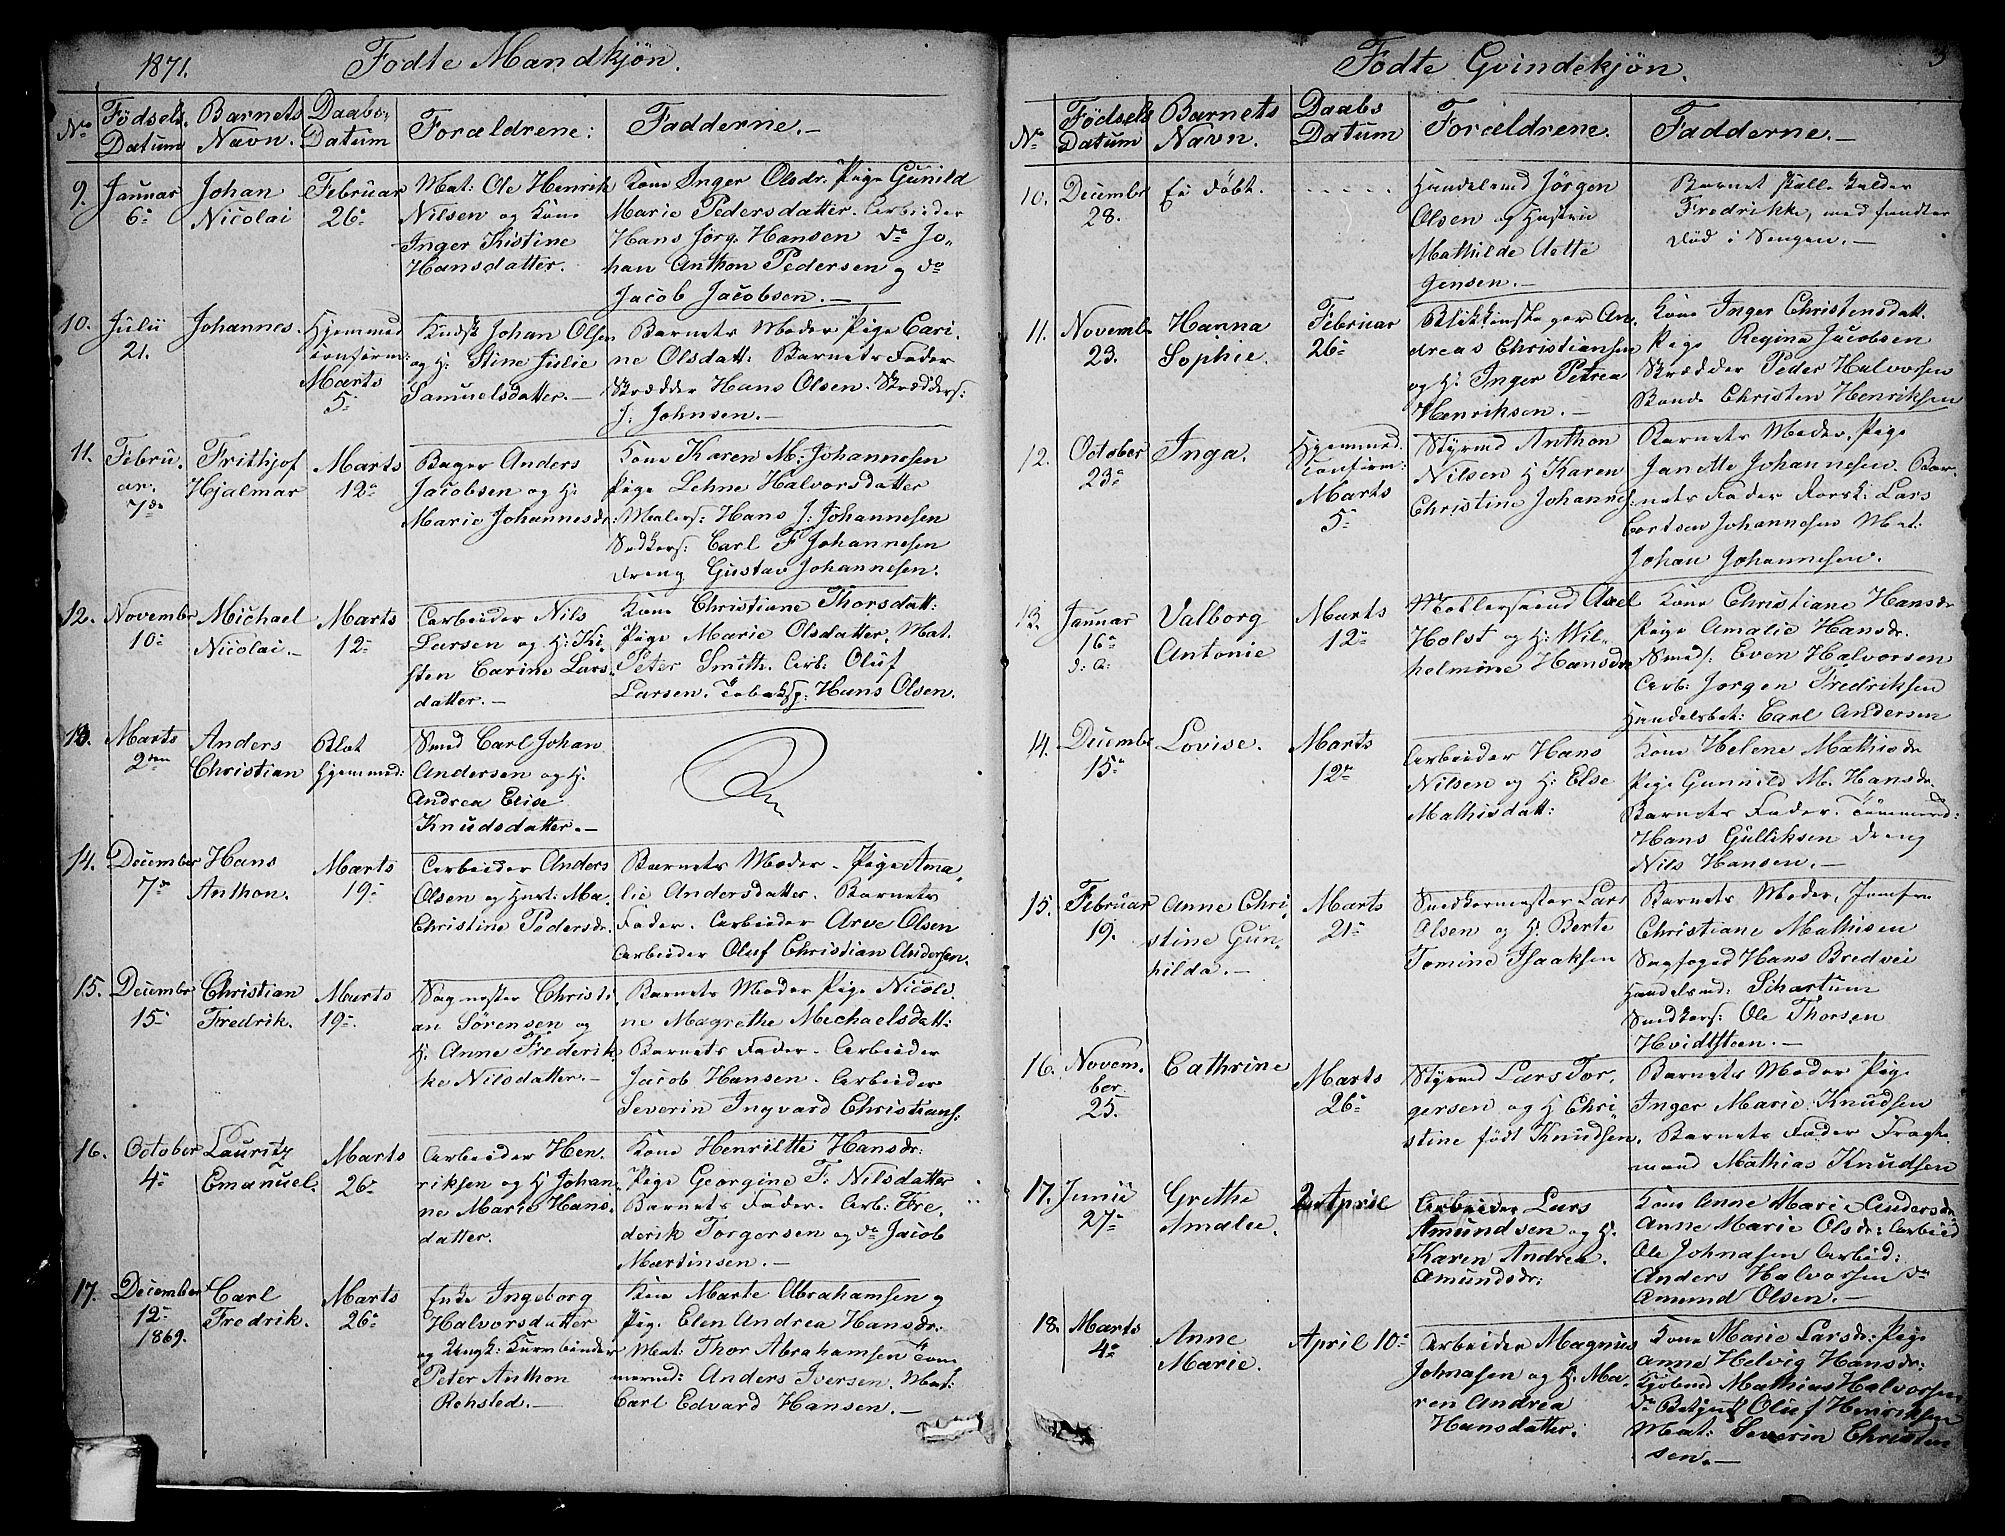 1871.
Fødte Mandkjøn.
No
Fødsels Datum
Barnets Navn.
Daabs Datum
Forældrene:
Fadderne.—
9.
Januar
6te
Johan
Nicolai
Februar
26de
Mat: Ole Henrik
Nilsen og Kone
Inger Kistine
Hansdatter.
Kone Inger Olsdr. Pige Gunild
Marie Pedersdatter. Arbeider
Hans Jörg. Hansen do Jo-
han Anthon Pedersen og do
Jacob Jacobsen.—
10.
Julii
21.
Johannes.
Hjemmed
Confirm:
Marts
5te
Kudsk Johan Olsen
og H. Stine Julie
Samuelsdatter.—
Barnets Moder Pige Cari-
ne Olsdatt: Barnets Fader
Skrædder Hans Olsen. Skrædders:
J. Johnsen.—
11.
Febru-
ar.
7de
Frithjof
Hjalmar
Marts
12te
Bager Anders
Jacobsen og H.
Marie Johannesdr:
Kone Karen M: Johannesen
Pige Lehne Halvorsdatter
Malers: Hans J: Johannesen
Snedkers: Carl F Johannesen
dreng Gustav Johannesen.
12.
November
10de
Michael
Nicolai.—
Marts
12te
Arbeider Nils
Larsen og H: Ki-
sten Carine Lars-
datter.—
Kone Christiane Thorsdatt:
Pige Marie Olsdatter. Mat.
Peter Smith. Arb: Oluf
Larsen. Tobaksp: Hans Olsen.
13.
Marts
2den
Anders
Christian
Blot
hjemmed:
Smed Carl Johan
Andersen og H.
Andrea Elise
Knudsdatter.—
14.
December
7de
Hans
Anthon.
Marts
19de
Arbeider Anders
Olsen og Hust: Ma.
Christine Pedersdr.
Barnets Moder. Pige Ama-
lie Andersdatter. Barnets
Fader. Arbeider Arve Olsen
Arbeider Oluf Christian Andersen.
15.
December
15de
Christian
Fredrik.
Marts
19de
Sagmester Christi
an Sörensen og
H. Anne Frederik
ke Nilsdatter.—
Barnets Moder Pige Nicoli-
ne Magrethe Mechaelsdatt:
Barnets Fader. Arbeider
Jacob Hansen. Arbeider
Severin Ingvard Christians:
16.
October
4de
Lauritz
Emanuel.
Marts
26de
Arbeider Hen-
riksen og H Johan-
ne Marie Hans-
datter.
Kone Henriette Hansdr:
Pige Georgine F. Nilsdatter
Barnets Fader. Arb: Fre-
derik Torgersen og do Jacob
Martinsen.—
17.
December
12te
1869.
Carl
Fredrik.
Marts
26de
Enke Ingeborg
Halvorsdatter
og Ungk: Kurvbinder
Peter Anthon
Rehsted.—
Kone Marte Abrahamsen og
Pig. Elen Andrea Hansdr:
Mat: Thor Abrahamsen Töm
mermd: Anders Iversen. Mat:
Carl Edvard Hansen.—
3
Födte Qvindekjön.
No
Födsels Datum
Barnets Navn.
Daabs Datum
Forældrene.
Fadderne.—
10.
Decembr
28.
Ei döbt.
Handelsmd Jörgen
Olsen og Hustru
Mathilde Aette
Jensen.—
Barnet skulle kaldes
Fredrikke, med fandtes
död i Sengen.—
11.
Novemb.
23.
Hanna
Sophie.
Februar
26de
Blikkenslager An-
dreas Christiansen
og H: Inger Petrea
Henriksen.—
Kone Inger Christensdatt.
Pige Regina Jacobsen
Skrædder Peder Halvorsen
Bonde Christen Henriksen
12.
October
23de
Inga.
Hjemmed.
Confirm:
Marts
5te
Styrmd Anthon
Nilsen H Karen
Christine Johannes:
Barnets Moder, Pige
Janette Johannesen. Bar-
nets Fader Lars
Johannesen Mat:
Johan Johannesen.
13.
Januar
16de
d: A:
Valborg
Antonie
Marts
12te
Möllersvend Axel
Holst og H: Wil-
helmine Hansdr
Kone Christiane Hansdr
Pige Amalie Hansdr.
Smeds: Even Halvorsen
Arb: Jorgen Fredriksen
Handelsbet: Carl Andersen
14.
Decembr
15de
Lovise.
Marts
12te
Arbeider Hans
Nilsen og H: Else
Mathisdatt:
Kone Helene Mathisdr
Pige Gunnild M. Hansdr.
Barnets Fader. Tömmermd:
Hans Gulliksen dreng
Nils Hansen.—
15.
Februar
19.
Anne Chri-
stine Gun-
hilda.—
Marts
21de
Snedkermester Lars
Olsen og H: Berte
Tomine Isaaksen
Barnets Moder, Jomfru
Christiane Mathisen
Sagfoged Hans Bredvei
Handelsmd: Schartum
Snedkers: Ole Thorsen
Hvidtsteen.—
16.
Novem-
ber
25.
Cathrine
Marts
26de
Styrmd Lars Tor-
gersen og H Chri-
stine födt Knudsen.
Barnets Moder Pige
Inger Marie Knudsen
Barnets Fader Fragte
mand Mathias Knudsen
17.
Junii
27de
Grethe
Amalie.
2 April
Arbeider Lars
Amundsen og H.
Karen Andrea
Amundsdr:
Kone Anne Marie Andersdr
Anne Marie Olsdr: Arbeid
Ole Johnasen Arbeid:
Anders Halvorsen do
Amund Olsen.—
18.
Marts
4de
Anne
Marie.
April 10de
Arbeider Magnus
Johnasen og H. Ma-
ren Andrea
Hansdatter.
Kone Marie Larsdr: Pige
Anne Helvig Hansdr:
Kjöbmd Mathias Halvorsen
do Betjent Oluf Henriksen
Mat: Severin Christen
sen.—